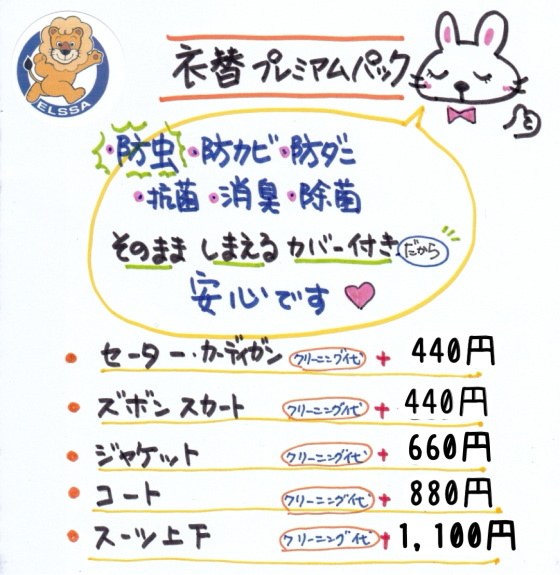 ELSSA
衣替プレミアムパック
・防虫・防カビ・防ダニ
・抗菌・消臭・除菌
そのまましまえるカバー付きだから
安心です♥
• セーター・カーディガン クリーニング代 + 440円
• ズボン スカート クリーニング代 + 440円
• ジャケット クリーニング代 + 660円
• コート クリーニング代 + 880円
• スーツ上下 クリーニング代 + 1,100円